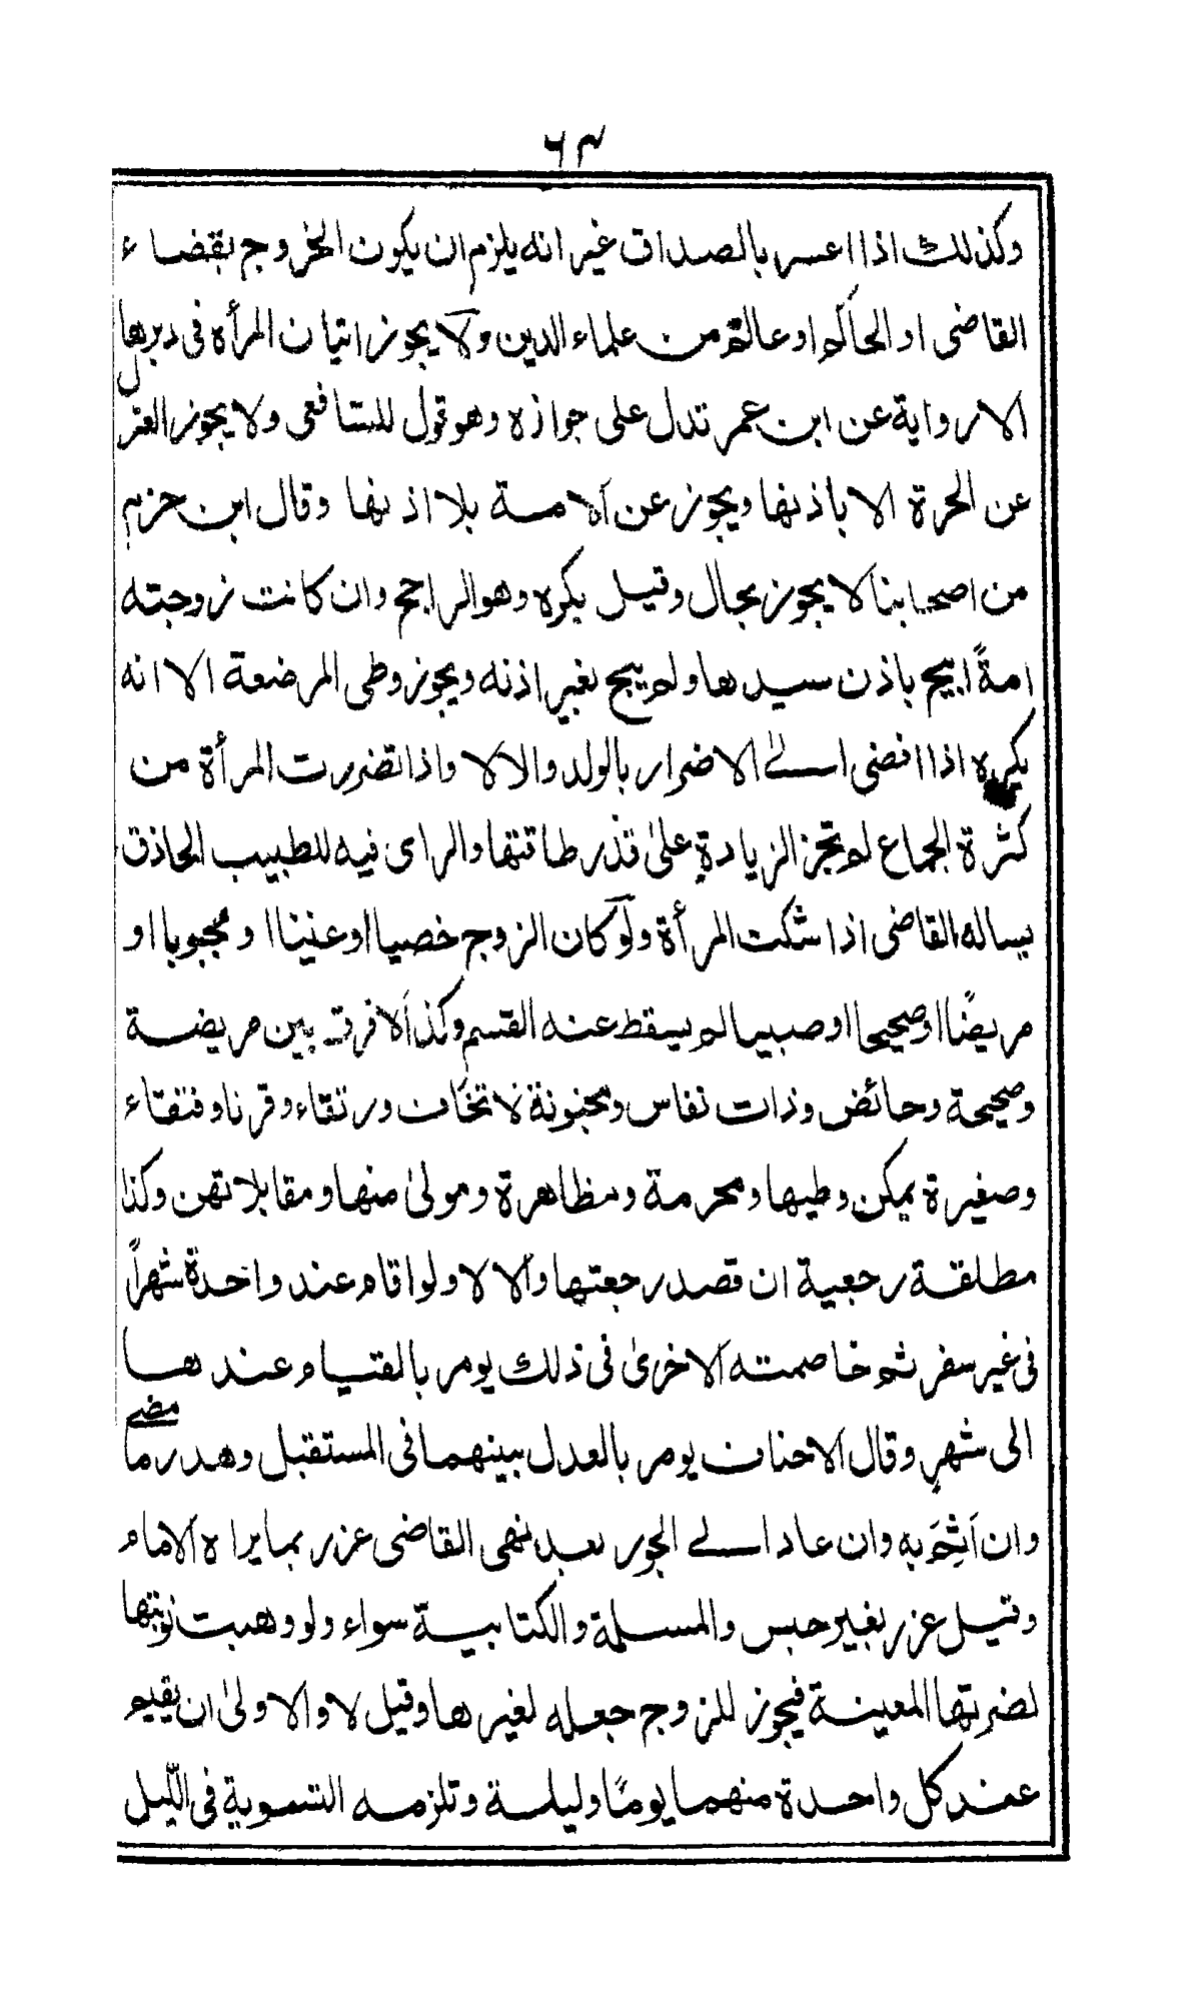 ٦٣
وكذلك اذا اعسر بالصداق غير انه يلزم ان يكون الخروج بقضاء
القاضى او الحاكم او عالم من علماء الدين ولا يجوز اتيان المرأة فى دبرها
الا رواية عن ابن عمر تدل على جوازه وهو قول للشافعى ولا يجوز العزل
عن الحرة الا باذنها ويجوز عن الامة بلا اذنها وقال ابن حزم
من اصحابنا لا يجوز بحال وقيل يكره وهو الراجح وان كانت زوجته
امةً ابيح باذن سيدها ولم يبح بغير اذنه ويجوز وطى المرضعة الا انه
يكره اذا افضى الى الاضرار بالولد والا لا واذا تضررت المرأة من
كثرة الجماع لم تجز الزيادة على قدر طاقتها والراى فيه للطبيب الحاذق
يساله القاضى اذا شكت المرأة ولو كان الزوج خصيا او عنينا او مجبوبا او
مريضًا او صحيحا او صبيا لم يسقط عنه القسم وكذا لا فرق بين مريضة
وصحيحة وحائض وذات نفاس ومجنونة لا تخاف ورتقاء وقرنا وفتقاء
وصغيرة يمكن وطيها ومحرمة ومظاهرة ومولى منها ومقابلاتهن وكذا
مطلقة رجعية ان قصد رجعتها والا لا ولو اقام عند واحدة شهراً
فى غير سفر ثم خاصمته الاخرى فى ذلك يومر بالقيام عندها
الى شهرٍ وقال الاحناف يومر بالعدل بينهما فى المستقبل وهدر ما مضى
وان اَثِمَ به وان عاد الى الجور بعد نهى القاضى عزر بما يراه الامام
وقيل عزر بغير حبس والمسلمة والكتابية سواء ولو وهبت نوبتها
لضرتها المعينة فيجوز للزوج جعله لغيرها وقيل لا والاولى ان يقيم
عند كل واحدة منهما يومًا وليلة وتلزمه التسوية فى اللّيل